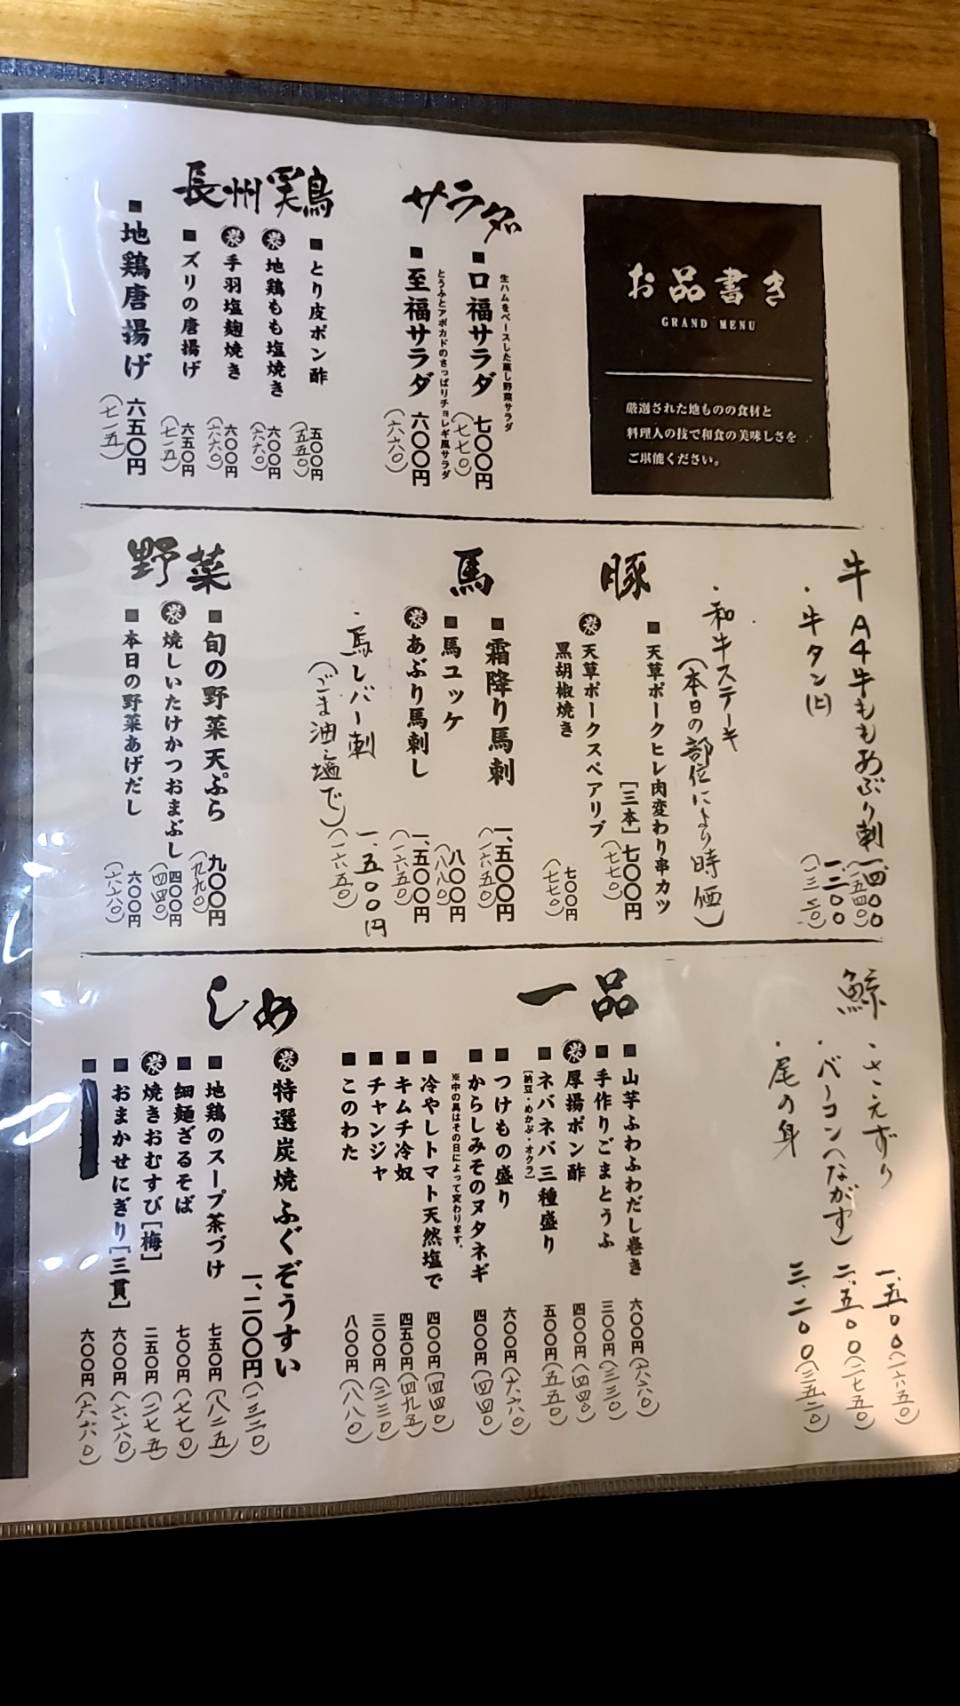 お品書き
GRAND MENU
厳選された地ものの食材と
料理人の技で和食の美味しさを
ご堪能ください。
サラダ
生ハムをベースした蒸し野菜サラダ
■口福サラダ 七〇〇円(七七〇)
とうふとアボカドのさっぱりチョレギ風サラダ
■至福サラダ 六〇〇円(六六〇)
長州鶏
■とり皮ポン酢 五〇〇円(五五〇)
炭 地鶏もも塩焼き 六〇〇円(六六〇)
炭 手羽塩麹焼き 六〇〇円(六六〇)
■ズリの唐揚げ 六五〇円(七一五)
■地鶏唐揚げ 六五〇円(七一五)
牛
A4牛ももあぶり刺 一、四〇〇(一五四〇)
・牛タン(上) 一二〇〇(一三二〇)
・和牛ステーキ
(本日の部位により時価)
豚
■天草ポークヒレ肉変わり串カツ
[三本]七〇〇円(七七〇)
炭 天草ポークスペアリブ
黒胡椒焼き 七〇〇円(七七〇)
馬
■霜降り馬刺 一、五〇〇円(一六五〇)
■馬ユッケ 八〇〇円(八八〇)
炭 あぶり馬刺し 一、五〇〇円(一六五〇)
・馬レバー刺 一、五〇〇円
(ごま油・塩で)(一六五〇)
野菜
■旬の野菜天ぷら 九〇〇円(九九〇)
炭 焼しいたけかつおまぶし 四〇〇円(四四〇)
■本日の野菜あげだし 六〇〇円(六六〇)
鯨
・さえずり 一、五〇〇(一六五〇)
・ベーコン(ながす) 二、五〇〇(二七五〇)
・尾の身 三、二〇〇(三五二〇)
一品
■山芋ふわふわだし巻き 六〇〇円(六六〇)
■手作りごまとうふ 三〇〇円(三三〇)
炭 厚揚ポン酢 四〇〇円(四四〇)
■ネバネバ三種盛り 五〇〇円(五五〇)
[納豆・めかぶ・オクラ]
■つけもの盛り 六〇〇円(六六〇)
■からしみそのヌタネギ 四〇〇円(四四〇)
※中の具はその日によって変わります。
■冷やしトマト天然塩で 四〇〇円(四四〇)
■キムチ冷奴 四五〇円(四九五)
■チャンジャ 三〇〇円(三三〇)
■このわた 八〇〇円(八八〇)
しめ
炭 特選炭焼ふぐぞうすい
一、二〇〇円(一三二〇)
■地鶏のスープ茶づけ 七五〇円(八二五)
■細麺ざるそば 七〇〇円(七七〇)
炭 焼きおむすび[梅] 二五〇円(二七五)
■おまかせにぎり[三貫] 六〇〇円(六六〇)
■ 六〇〇円(六六〇)